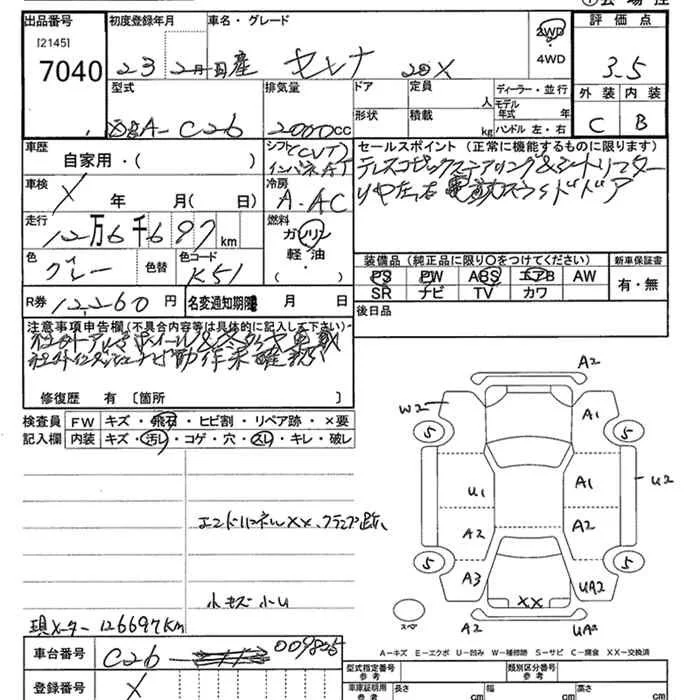 出品番号 初度登録年月 車名・グレード 評価点
[2145]
7040
23 2月 日産 セレナ 20X
2WD
4WD
3.5
型式 排気量 ドア 定員 人 ディーラー・並行
形状 積載 kg モデル年式 年
ハンドル 左・右
外装 内装
C B
DBA-C26 2000cc
車歴 自家用・( )
シフト (CVT)
インパネAT
セールスポイント(正常に機能するものに限ります)
車検 X 年 月( 日)
冷房 A.AC
走行 12万6千697km
燃料 ガソリン
軽油・
( )
色 グレー 色替 色コード K51
装備品(純正品に限り○をつけてください) 新車保証書
PS PW ABS エアB AW 有・無
SR ナビ TV カワ
R券 12,260円 名変通知期限 月 日
後日品
注意事項申告欄(不具合内容等は具体的に記入して下さい)
修復歴 有 〔箇所 〕
検査員 FW キズ・飛石・ヒビ割・リペア跡・×要
記入欄 内装 キズ・汚レ・コゲ・穴・スレ・キレ・破レ
A2
W2 A1
5 5
U1 A1 U2
A2 A2
エンドパネルXX、
5 5
A3 UA2
XX
小キズ小U
スペ A2 UA2
現メーター 126697km
A-キズ E-エクボ U-凹み W-補修跡 S-サビ C-腐食 XX-交換済
車台番号 C26- 009835
登録番号 X
型式指定番号 参考 類別区分番号 参考
車庫証明用 参考 長さ cm 幅 cm 高さ cm